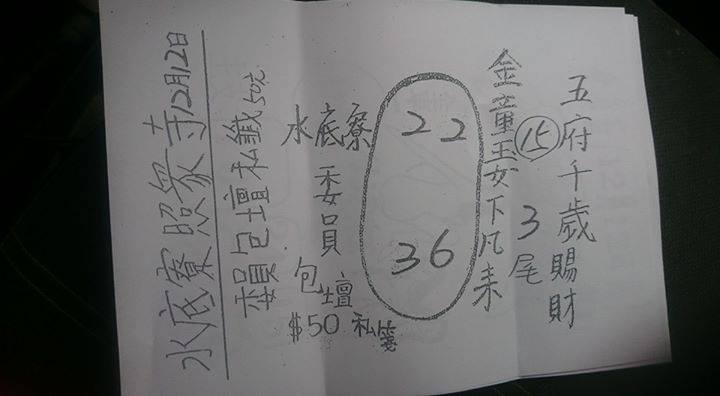 水底寮照衆寺12月12日
委員包壇私籤50元
五府千歲賜財
金童玉女下凡来
15
3尾
22
36
水底寮
委員
包壇
$50 私箋